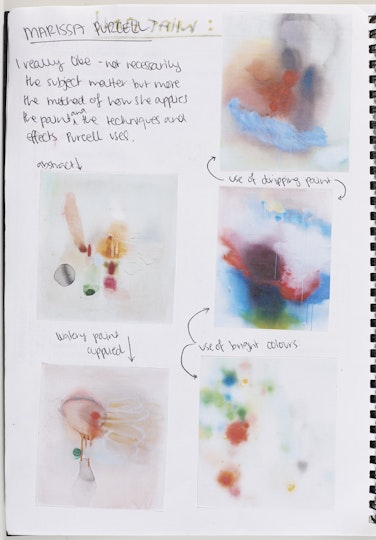 MARISSA PURCELL
I really like - not necessarily
the subject matter but more
the method of how she applies
the paint and the techniques and
effects Purcell uses.
abstract
use of dripping paint
watery paint
applied
use of bright colours